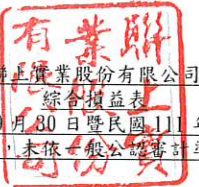 聯上實業股份有限公司
綜合損益表
月 30 日暨民國 111 年
，未依一般公認審計準